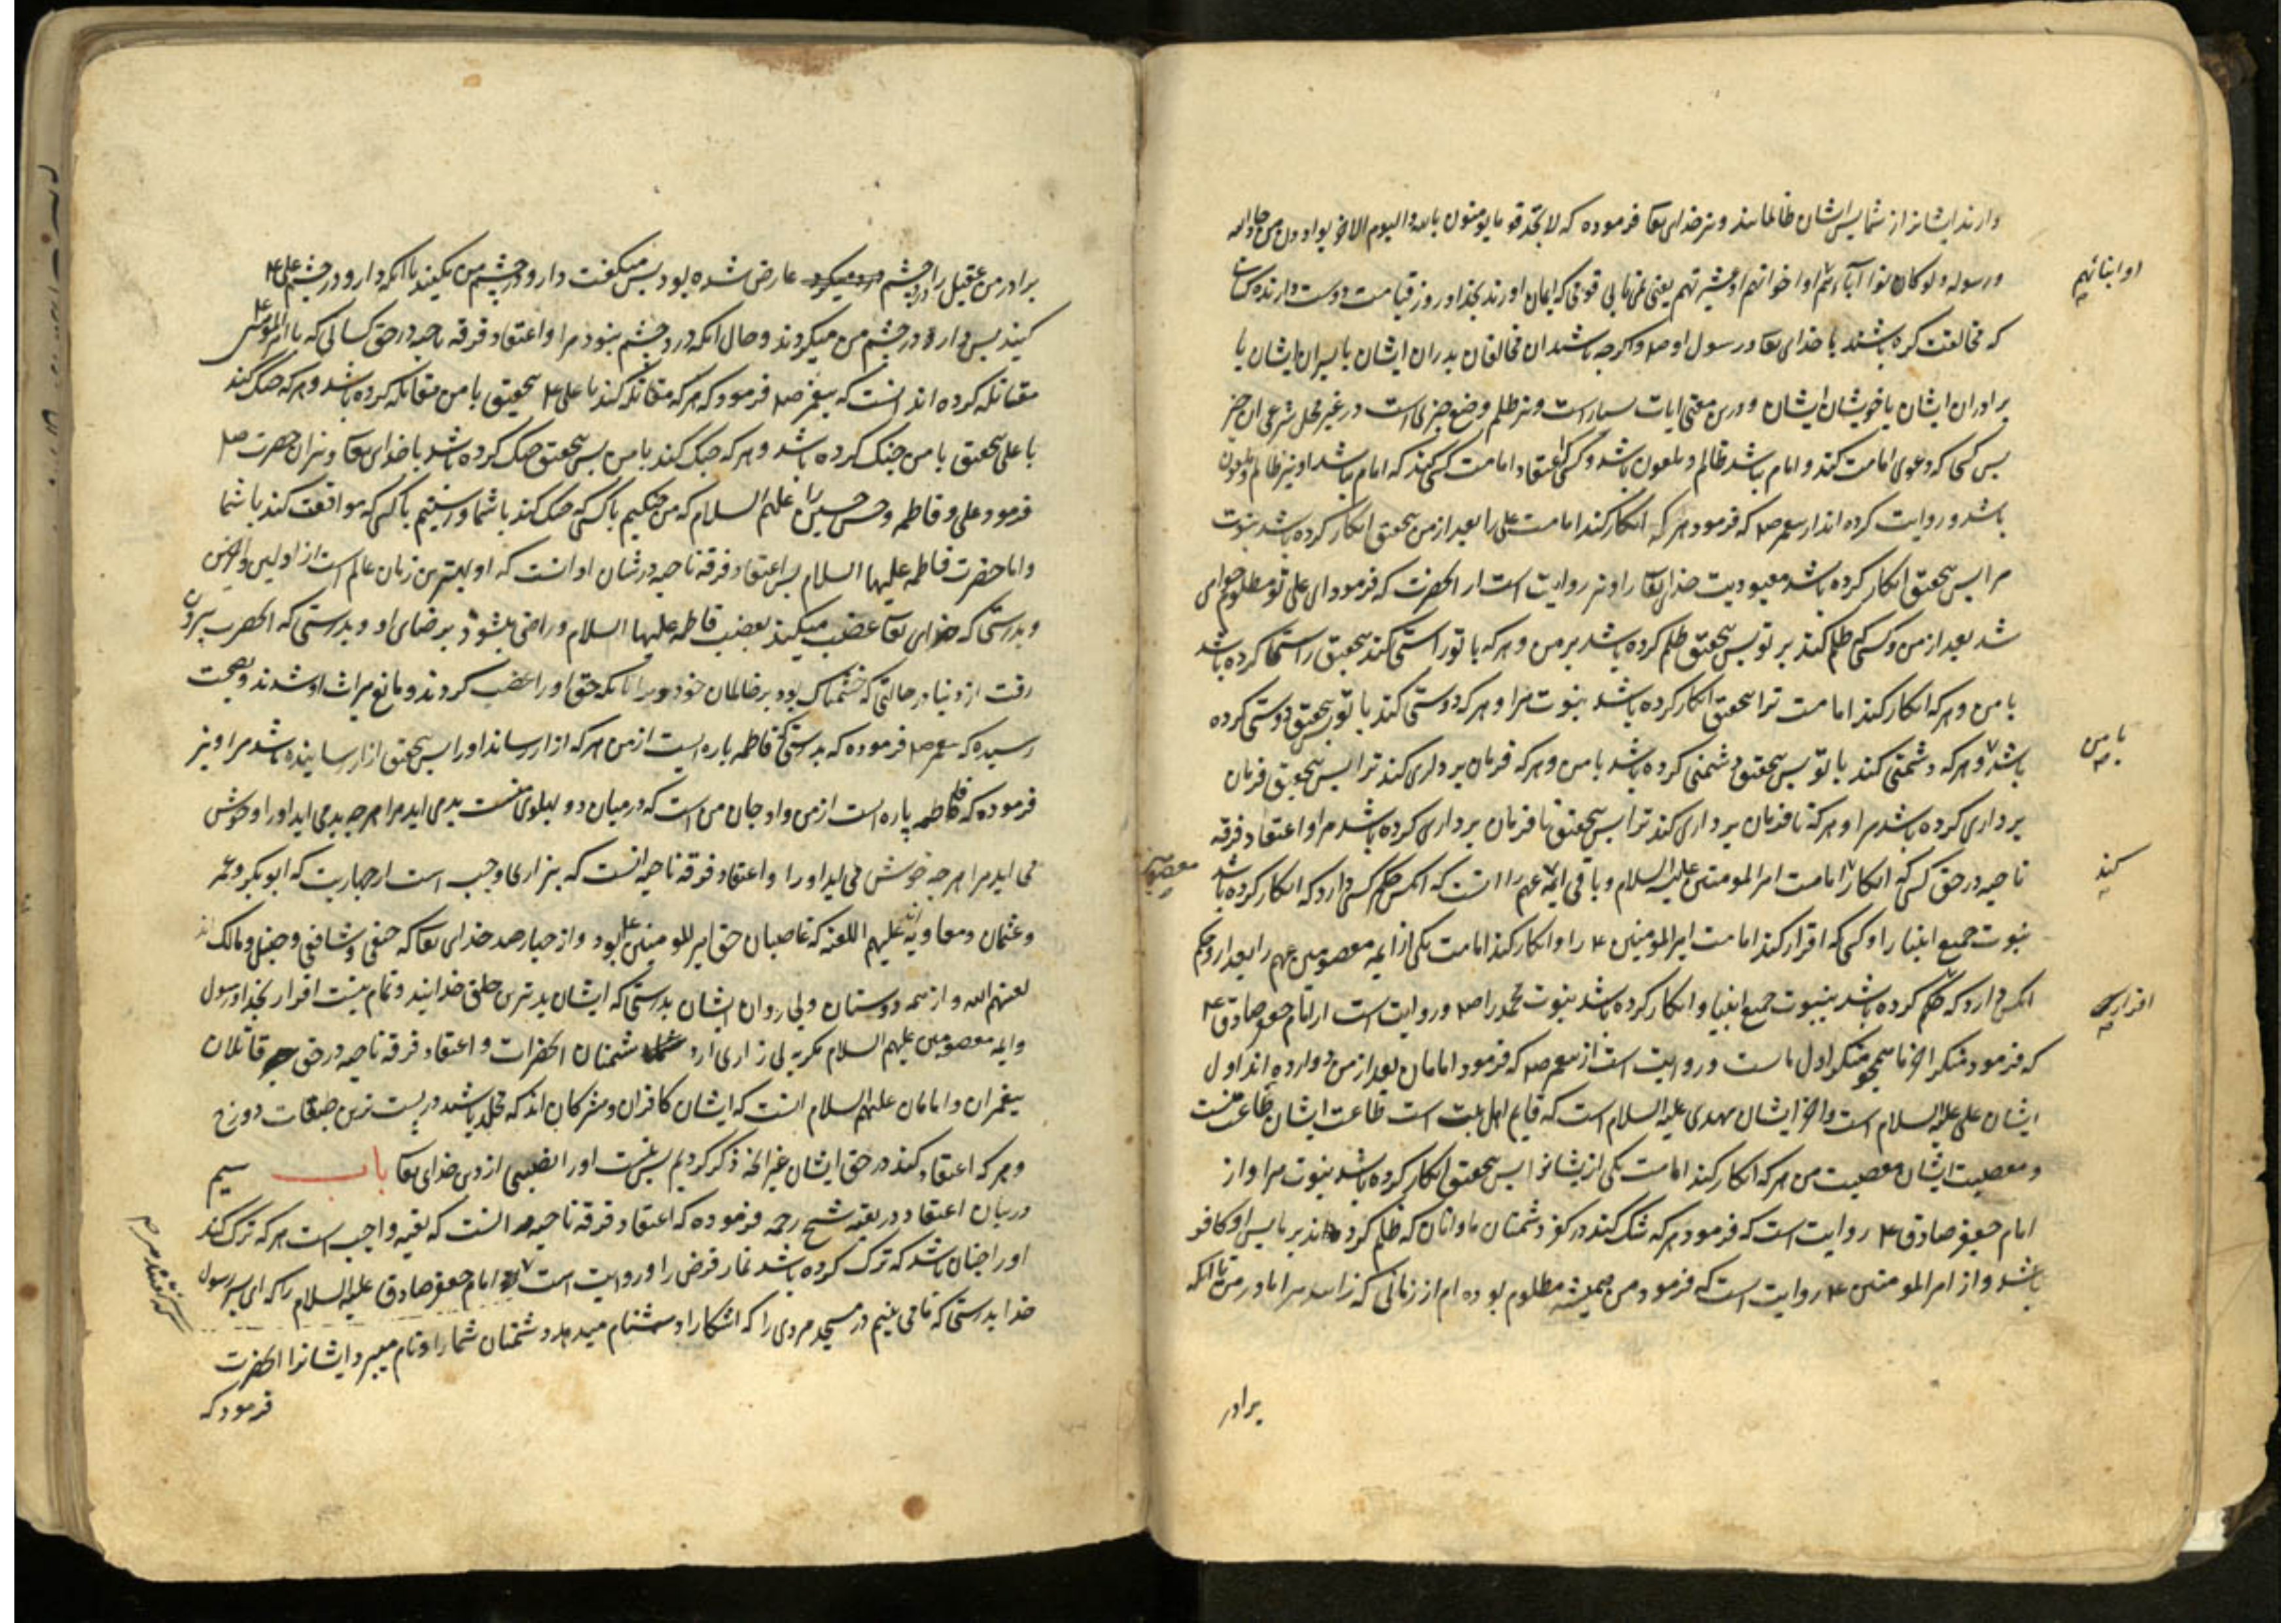 دارند ایشانرا از شما پس ایشان ظالمانند و نیز خدای تعا فرموده که لا تجد قوما یؤمنون بالله و الیوم الاخر یوادون من حاد الله
و رسوله و لو کانوا آباءهم او اخوانهم او عشیرتهم یعنی نمی یابی قومی که ایمان اورند بخدا و روز قیامت دوست دارنده کسانی
او ابنائهم
که مخالفت کرده باشند با خدای تعا و رسول او صم و اگرچه باشند ان مخالفان پدران ایشان یا پسران ایشان یا
برادران ایشان یا خویشان ایشان و درین معنی ایات بسیار است و نیز ظلم وضع چیزی است در غیر محل شرعی ان چیز
پس کسی که دعوی امامت کند و امام نباشد ظالم و ملعون باشد و کسی که اعتقاد امامت کسی کند که امام نباشد او نیز ظالم و ملعون
باشد و روایت کرده اند از پیغمبر صم که فرمود هر که انکار کند امامت علی را بعد از من بتحقیق انکار کرده باشد نبوت
مرا پس بتحقیق انکار کرده باشد معبودیت خدای تعا را و نیز روایت است از انحضرت که فرمود ای علی تو مظلوم خواهی
شد بعد از من و کسی که ظلم کند بر تو پس بتحقیق ظلم کرده باشد بر من و هر که با تو راستی کند بتحقیق راستی کرده باشد
با من و هر که انکار کند امامت ترا بتحقیق انکار کرده باشد نبوت مرا و هر که دوستی کند با تو بتحقیق دوستی کرده
با من
باشد و هر که دشمنی کند با تو پس بتحقیق دشمنی کرده باشد با من و هر که فرمان برداری کند ترا پس بتحقیق فرمان
برداری کرده باشد مرا و هر که نافرمان برداری کند ترا پس بتحقیق نافرمان برداری کرده باشد مرا و اعتقاد فرقه
ناجیه در حق کسی که انکار امامت امیر المومنین علیه السلام و باقی ایمه عهم را انست که انکس حکم کسی دارد که انکار کرده باشد
کند
نبوت جمیع انبیا را و کسی که اقرار کند امامت امیر المومنین ع را و انکار کند امامت یکی از ایمه معصومین عهم را بعد از و حکم
انکس دارد که حکم کرده باشد بنبوت جمیع انبیا و انکار کرده باشد نبوت محمد را صم و روایت است از امام جعفر صادق ع
اقرار
که فرمود منکر اخر ما همچو منکر اول ما است و روایت است از پیغمبر صم که فرمود امامان بعد از من دوازده اند اول
ایشان علی علیه السلام است و اخر ایشان مهدی علیه السلام است که قایم اهل بیت است طاعت ایشان طاعت منست
و معصیت ایشان معصیت من هر که انکار کند امامت یکی از ایشانرا پس بتحقیق انکار کرده باشد نبوت مرا و از
امام جعفر صادق ع روایت است که فرمود هر که شک کند در کفر دشمنان ما و انان که ظلم کرده اند بر ما پس او کافر
باشد و از امیر المومنین ع روایت است که فرمود من همیشه مظلوم بوده ام از زمانی که زاد مرا مادر من تا انکه
برادر
برادر من عقیل را درد چشم عارض شده بود پس میگفت دارو در چشم من نکنید تا انکه دارو در چشم علی ع
کنید پس دارو در چشم من میکردند و حال انکه درد چشم نبود مرا و اعتقاد فرقه ناجیه در حق کسانی که با امیر المومنین ع
مقاتله کرده اند انست که پیغمبر صم فرمود که هر که مقاتله کند با علی ع بتحقیق با من مقاتله کرده باشد و هر که جنک کند
با علی بتحقیق با من جنک کرده باشد و هر که جنک کند با من پس بتحقیق جنک کرده باشد با خدای تعا و نیز ان حضرت صم
فرمود علی و فاطمه و حسن و حسین را علیهم السلام که من جنکیم با کسی که جنک کند با شما و راستیم با کسی که موافقت کند با شما
و اما حضرت فاطمه علیها السلام پس اعتقاد فرقه ناجیه در شان او انست که او بهترین زنان عالم است از اولین و اخرین
و بدرستی که خدای تعا غضب میکند بغضب فاطمه علیها السلام و راضی میشود برضای او و بدرستی که انحضرت بیرون
رفت از دنیا در حالتی که خشمناک بود بر ظالمان خود برانکه حق او را غضب کردند و مانع میراث او شدند و بصحت
رسیده که پیغمبر صم فرموده که بدرستی که فاطمه پاره ایست از من هر که ازار رساند او را پس بتحقیق ازار رسانیده باشد مرا و نیز
فرموده که فاطمه پاره است از من و او جان من است که در میان دو پهلوی منست بد می اید مرا هر چه بد می اید او را و خوش
می اید مرا هر چه خوش می اید او را و اعتقاد فرقه ناجیه انست که بیزاری واجب است از چهار بت که ابوبکر و عمر
و عثمان و معاویه اند علیهم اللعنه که غاصبان حق امیر المومنین ع بود و از چهار ضد خدای تعا که حنفی و شافعی و حنبلی و مالک اند
لعنهم الله و از همه دوستان و پی روان ایشان بدرستی که ایشان بدترین خلق خدایند و تمام نیست اقرار بخدا و رسول
و ایمه معصومین علیهم السلام مگر به بی زاری از دشمنان انحضرات و اعتقاد فرقه ناجیه در حق قاتلان
پیغمبران و امامان علیهم السلام انست که ایشان کافران و مشرکان اند که مخلد باشند در پست ترین طبقات دوزخ
و هر که اعتقاد کند در حق ایشان غیر انچه ذکر کردیم پس نیست او را نصیبی از دین خدای تعا باب سیم
در بیان اعتقاد در تقیه شیخ رحمه فرموده که اعتقاد فرقه ناجیه انست که تقیه واجب است هر که ترک کند
او را چنان باشد که ترک کرده باشد نماز فرض را و روایت است امام جعفر صادق علیه السلام را که ای پسر رسول
خدا بدرستی که ما می بینیم در مسجد مردی را که اشکارا دشنام میدهد دشمنان شما را و نام میبرد ایشانرا انحضرت
فرمود که